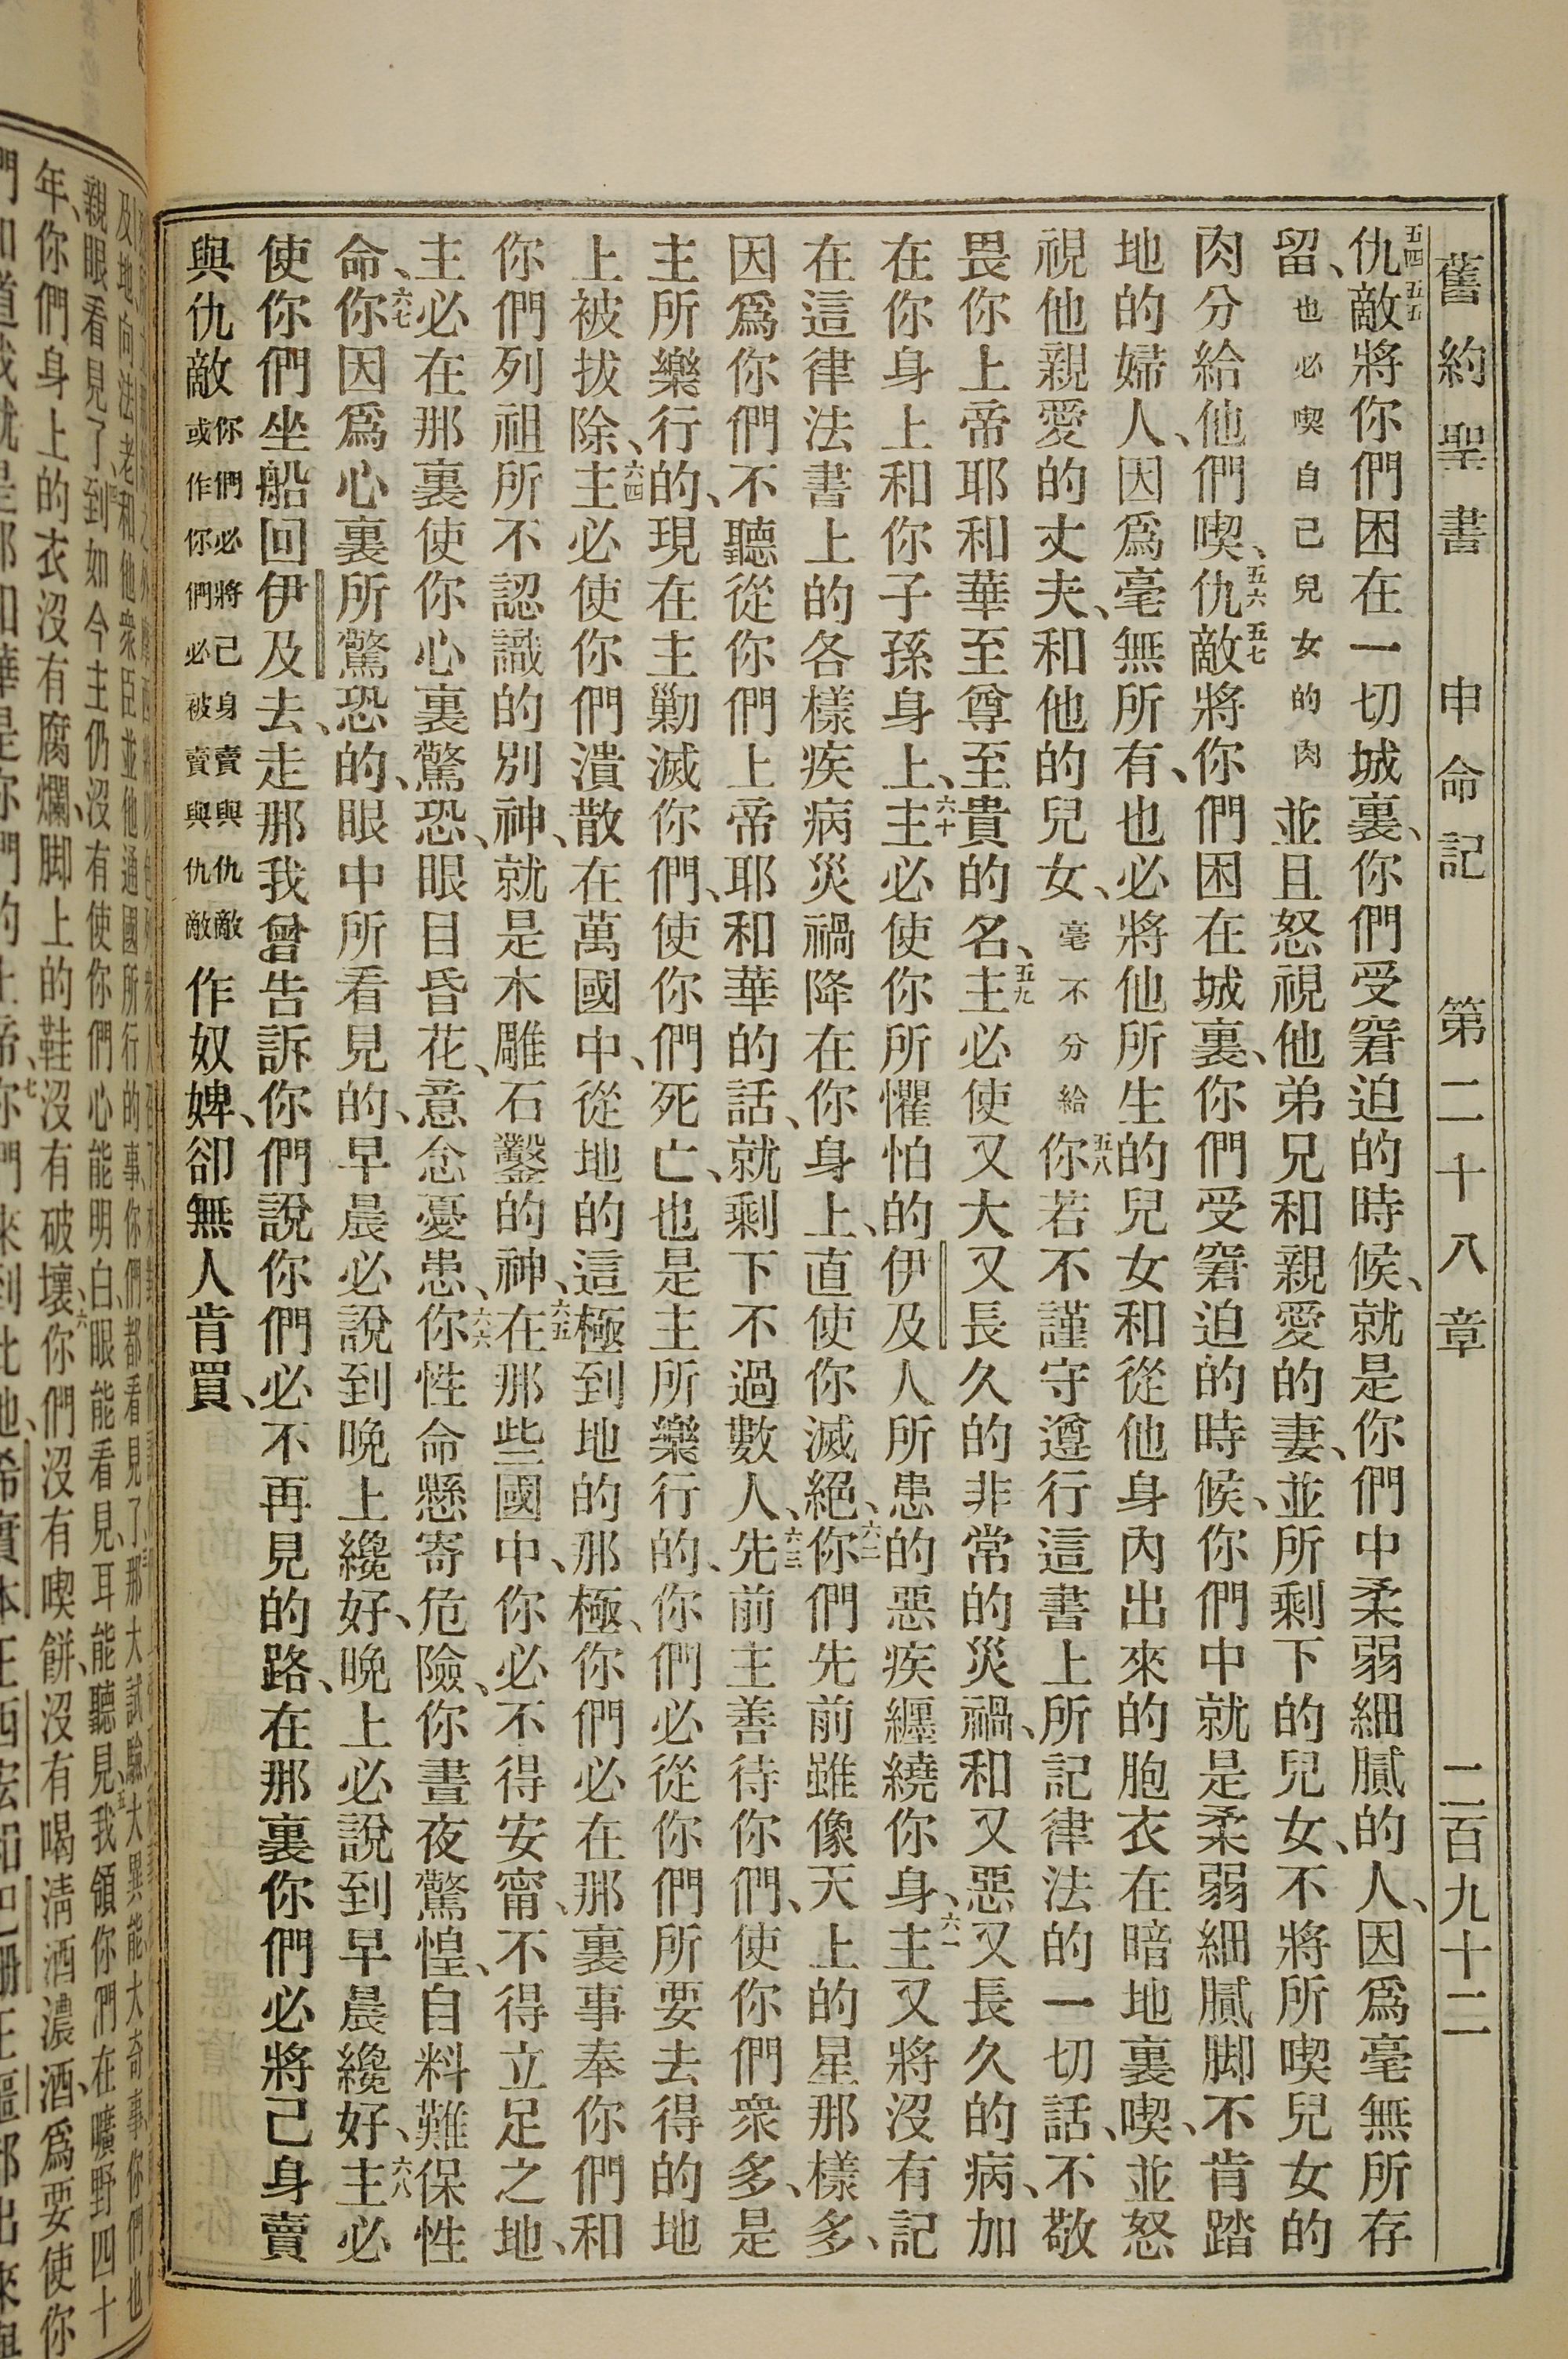 舊約聖書 申命記 第二十八章 二百九十二
五四五五仇敵將你們困在一切城裏、你們受窘迫的時候、就是你們中柔弱細膩的人、因爲毫無所存
留、也必喫自己兒女的肉並且怒視他弟兄和親愛的妻、並所剩下的兒女、不將所喫兒女的
肉分給他們喫、五六五七仇敵將你們困在城裏、你們受窘迫的時候、你們中就是柔弱細膩脚不肯踏
地的婦人、因爲毫無所有、也必將他所生的兒女和從他身內出來的胞衣在暗地裏喫、並怒
視他親愛的丈夫、和他的兒女、毫不分給五八你若不謹守遵行這書上所記律法的一切話、不敬
畏你上帝耶和華至尊至貴的名、五九主必使又大又長久的非常的災禍、和又惡又長久的病、加
在你身上和你子孫身上、六十主必使你所懼怕的伊及人所患的惡疾纏繞你身、六一主又將沒有記
在這律法書上的各樣疾病災禍降在你身上、直使你滅絕、六二你們先前雖像天上的星那樣多、
因爲你們不聽從你們上帝耶和華的話、就剩下不過數人、六三先前主善待你們、使你們衆多、是
主所樂行的、現在主勦滅你們、使你們死亡、也是主所樂行的、你們必從你們所要去得的地
上被拔除、六四主必使你們潰散在萬國中、從地的這極到地的那極、你們必在那裏事奉你們和
你們列祖所不認識的別神、就是木雕石鑿的神、六五在那些國中、你必不得安甯、不得立足之地、
主必在那裏使你心裏驚恐、眼目昏花、意念憂患、六六你性命懸寄危險、你晝夜驚惶、自料難保性
命、六七你因爲心裏所驚恐的、眼中所看見的、早晨必說到晚上纔好、晚上必說到早晨纔好、六八主必
使你們坐船回伊及去、走那我曾告訴你們說你們必不再見的路、在那裏你們必將己身賣
與仇敵你們必將己身賣與仇敵或作你們必被賣與仇敵作奴婢、卻無人肯買、
親眼看見了、到如今主仍沒有使你們心能明白、眼能看見、耳能聽見、五我領你們在曠野四十
年、你們身上的衣沒有腐爛、脚上的鞋沒有破壞、六你們沒有喫餅、沒有喝淸酒濃酒、爲要使你